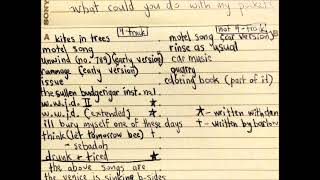 what could you do with my pockets
SONY
A
kites in trees (4 track)
motel song
unwind (no. 789) (early version)
rummage (early version)
issue
the sullen budgerigar inst. no. 1
w.w.j.d. II
w.w.j.d. (extended)
ill bury myself one of these days
think (let tomorrow bee) †
- sebadoh
drunk + tired
the above songs are
the venice is sinking b-sides
(not 4-track)
motel song (car version)
rinse as usual
car music
quality
coloring book (part of it)
★ - written with dan
† - written by barlow